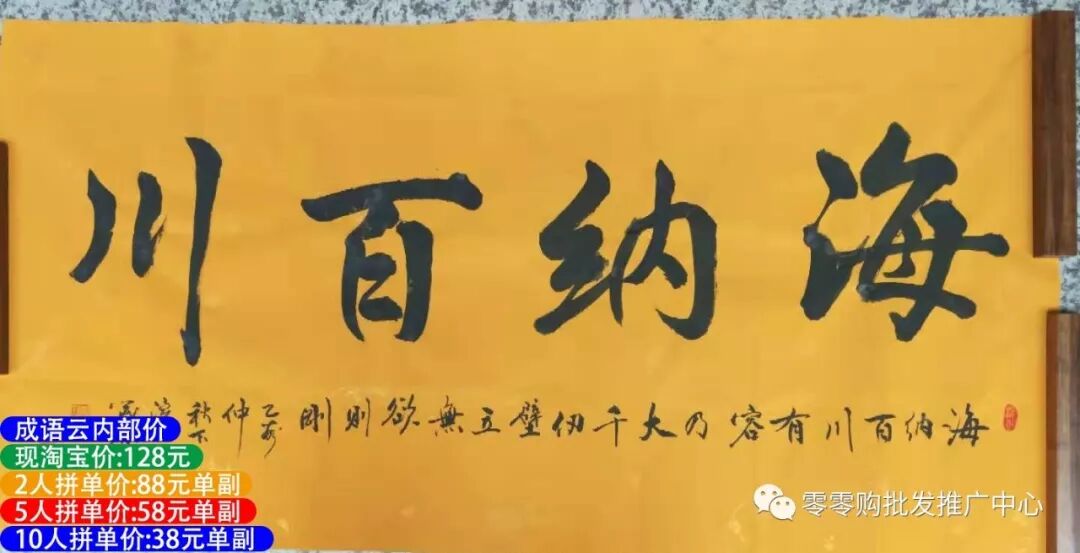 海纳百川
海纳百川有容乃大千仞壁立無欲则刚
仲秋
成语云内部价
现淘宝价:128元
2人拼单价:88元单副
5人拼单价:58元单副
10人拼单价:38元单副
零零购批发推广中心